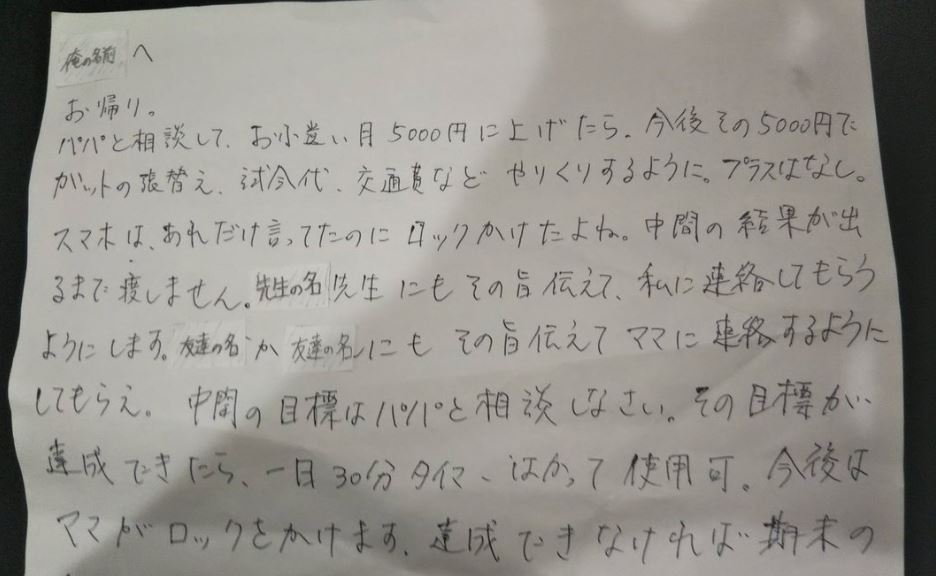 俺の名前 へ
お帰り。
パパと相談して、お小遣い月5000円に上げたら、今後その5000円で
ガットの張替え、試合代、交通費など やりくりするように。プラスはなし。
スマホは、あれだけ言ってたのに ロックかけたよね。中間の結果が出
るまで渡しません。先生の名 先生 にもその旨伝えて、私に連絡してもらう
ようにします。友達の名 か 友達の名 にも その旨伝えて ママに連絡するように
してもらえ。中間の目標はパパと相談しなさい。その目標が、
達成できたら、一日30分タイマーはかって使用可。今後は
ママがロックをかけます。達成できなければ期末の